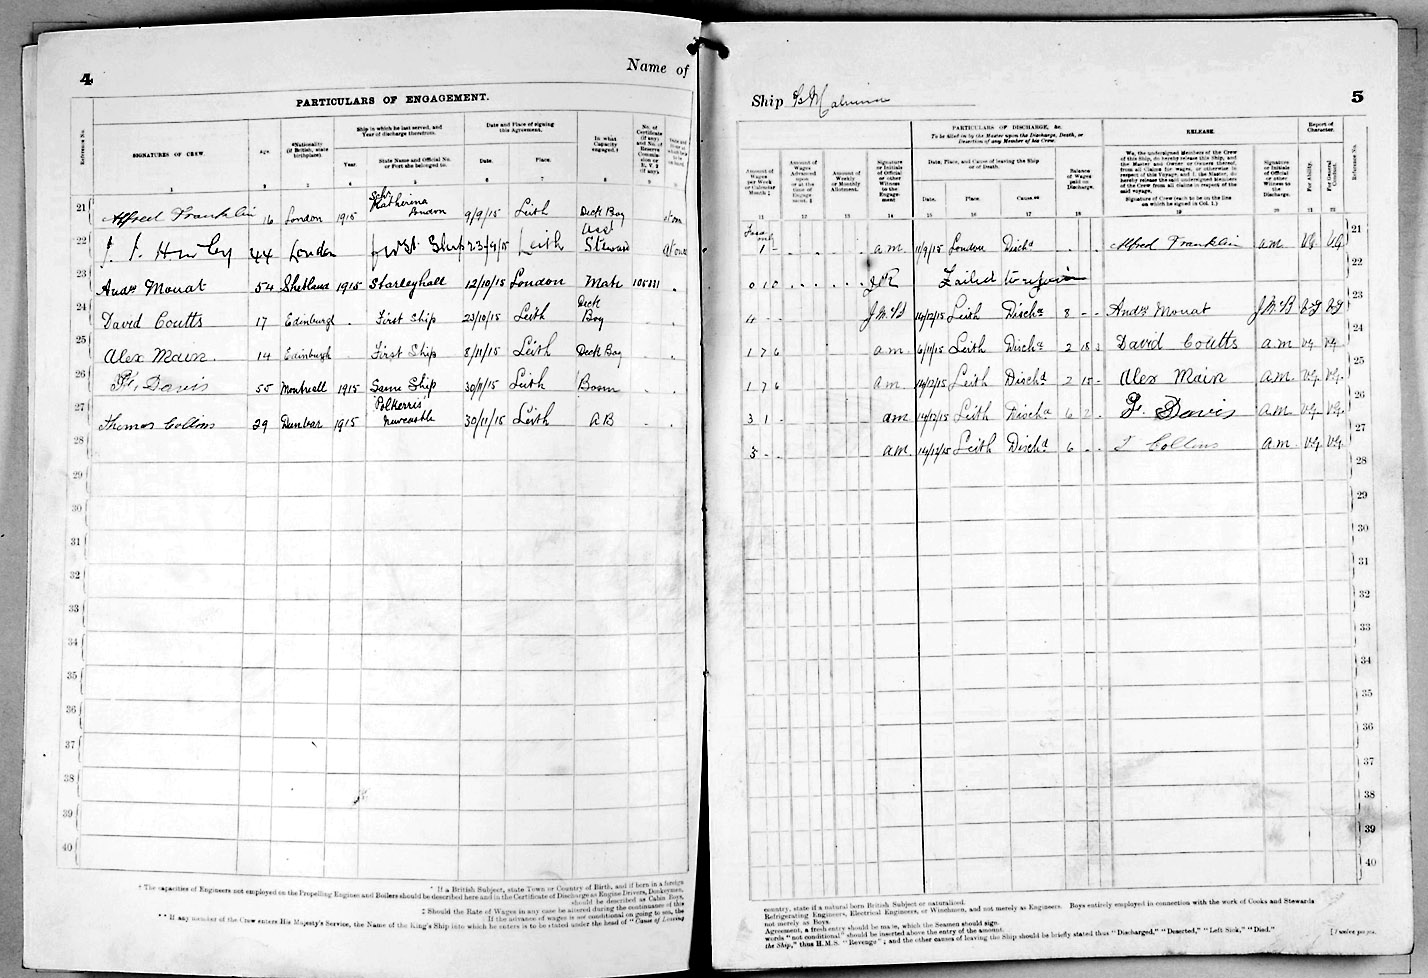 4
Name of
PARTICULARS OF ENGAGEMENT.
Reference No.
SIGNATURES OF CREW.
Age.
*Nationality (if British, state birthplace).
Ship in which he last served, and Year of discharge therefrom.
Year.
State Name and Official No. or Port she belonged to.
Date and Place of signing this Agreement.
Date.
Place.
In what Capacity engaged.†
No. of Certificate (if any), and No. of Reserve Commission or R.V.2 (if any).
1 2 3 4 5 6 7 8 9
21 Alfred Franklin 16 London 1915 Katherina London 9/9/15 Leith Deck Boy at once
22 44 London 1st Ship 23/9/15 Leith Asst Steward at once
23 Andw Mouat 54 Shetland 1915 Starleyhall 12/10/15 London Mate
24 David Coutts 17 Edinburgh First Ship 23/10/15 Leith Deck Boy
25 Alex Main. 14 Edinburgh First Ship 8/11/15 Leith Deck Boy
26 Davis 55 Montreall 1915 Same Ship 30/11/15 Leith Bosun
27 Thomas Collins 29 Dunbar 1915 Polkerris Newcastle 30/11/15 Leith A B
28
29
30
31
32
33
34
35
36
37
38
39
40
* If a British Subject, state Town or Country of Birth, and if born in a foreign
† The capacities of Engineers not employed on the Propelling Engines and Boilers should be described here and in the Certificate of Discharge as Engine Drivers, Donkeymen,
should be described as Cabin Boys,
‡ Should the Rate of Wages in any case be altered during the continuance of this
If the advance of wages is not conditional on going to sea, the
** If any member of the Crew enters His Majesty's Service, the Name of the King's Ship into which he enters is to be stated under the head of "Cause of Leaving
Ship Malvina
5
PARTICULARS OF DISCHARGE, &c.
To be filled in by the Master upon the Discharge, Death, or Desertion of any Member of his Crew.
RELEASE.
Report of Character.
Reference No.
Amount of Wages per Week or Calendar Month ‡
Amount of Wages Advanced upon or at the time of Engagement. ‡
Amount of Weekly or Monthly Allotment.
Signature or Initials of Official or other Witness to the Engagement
Date, Place, and Cause of leaving this Ship or of Death.
Date.
Place.
Cause.**
Balance of Wages paid on Discharge.
We, the undersigned Members of the Crew of this Ship, do hereby release this Ship, and the Master and Owner or Owners thereof, from all claims for wages, or otherwise in respect of this Voyage, and I, the Master, do hereby release the said undersigned Members of the Crew from all claims in respect of the said voyage.
Signature of Crew (each to be on the line on which he signed in Col. 1.)
Signature or Initials of Official or other Witness to the Discharge.
For Ability.
For General Conduct.
11 12 13 14 15 16 17 18 19 20 21 22
1 - a.m. 11/9/15 London Dischd Alfred Franklin a.m. V.G. V.G. 21
Failed to rejoin 22
4 - - 14/12/15 Leith Dischd 8 - - Andw Mouat 23
1 7 6 a.m. 6/11/15 Leith Dischd 2 18 3 David Coutts a.m V.G. V.G. 24
1 7 6 a.m. 14/12/15 Leith Dischd 2 15 - Alex Main a.m. V.G. V.G. 25
3 1 - a.m 14/12/15 Leith Dischd 6 2 - Davis a.m. V.G. V.G. 26
5 - - a.m. 14/12/15 Leith Dischd 6 - - T Collins a.m. V.G. V.G. 27
28
29
30
31
32
33
34
35
36
37
38
39
40
country, state if a natural born British Subject or naturalised.
Refrigerating Engineers, Electrical Engineers, or Winchmen, and not merely as Engineers. Boys entirely employed in connection with the work of Cooks and Stewards
not merely as Boys.
Agreement, a fresh entry should be made, which the Seamen should sign.
words "not conditional" should be inserted above the entry of the amount.
the Ship," thus H.M.S. "Revenge"; and the other causes of leaving the Ship should be briefly stated thus "Discharged," "Deserted," "Left Sick," "Died."